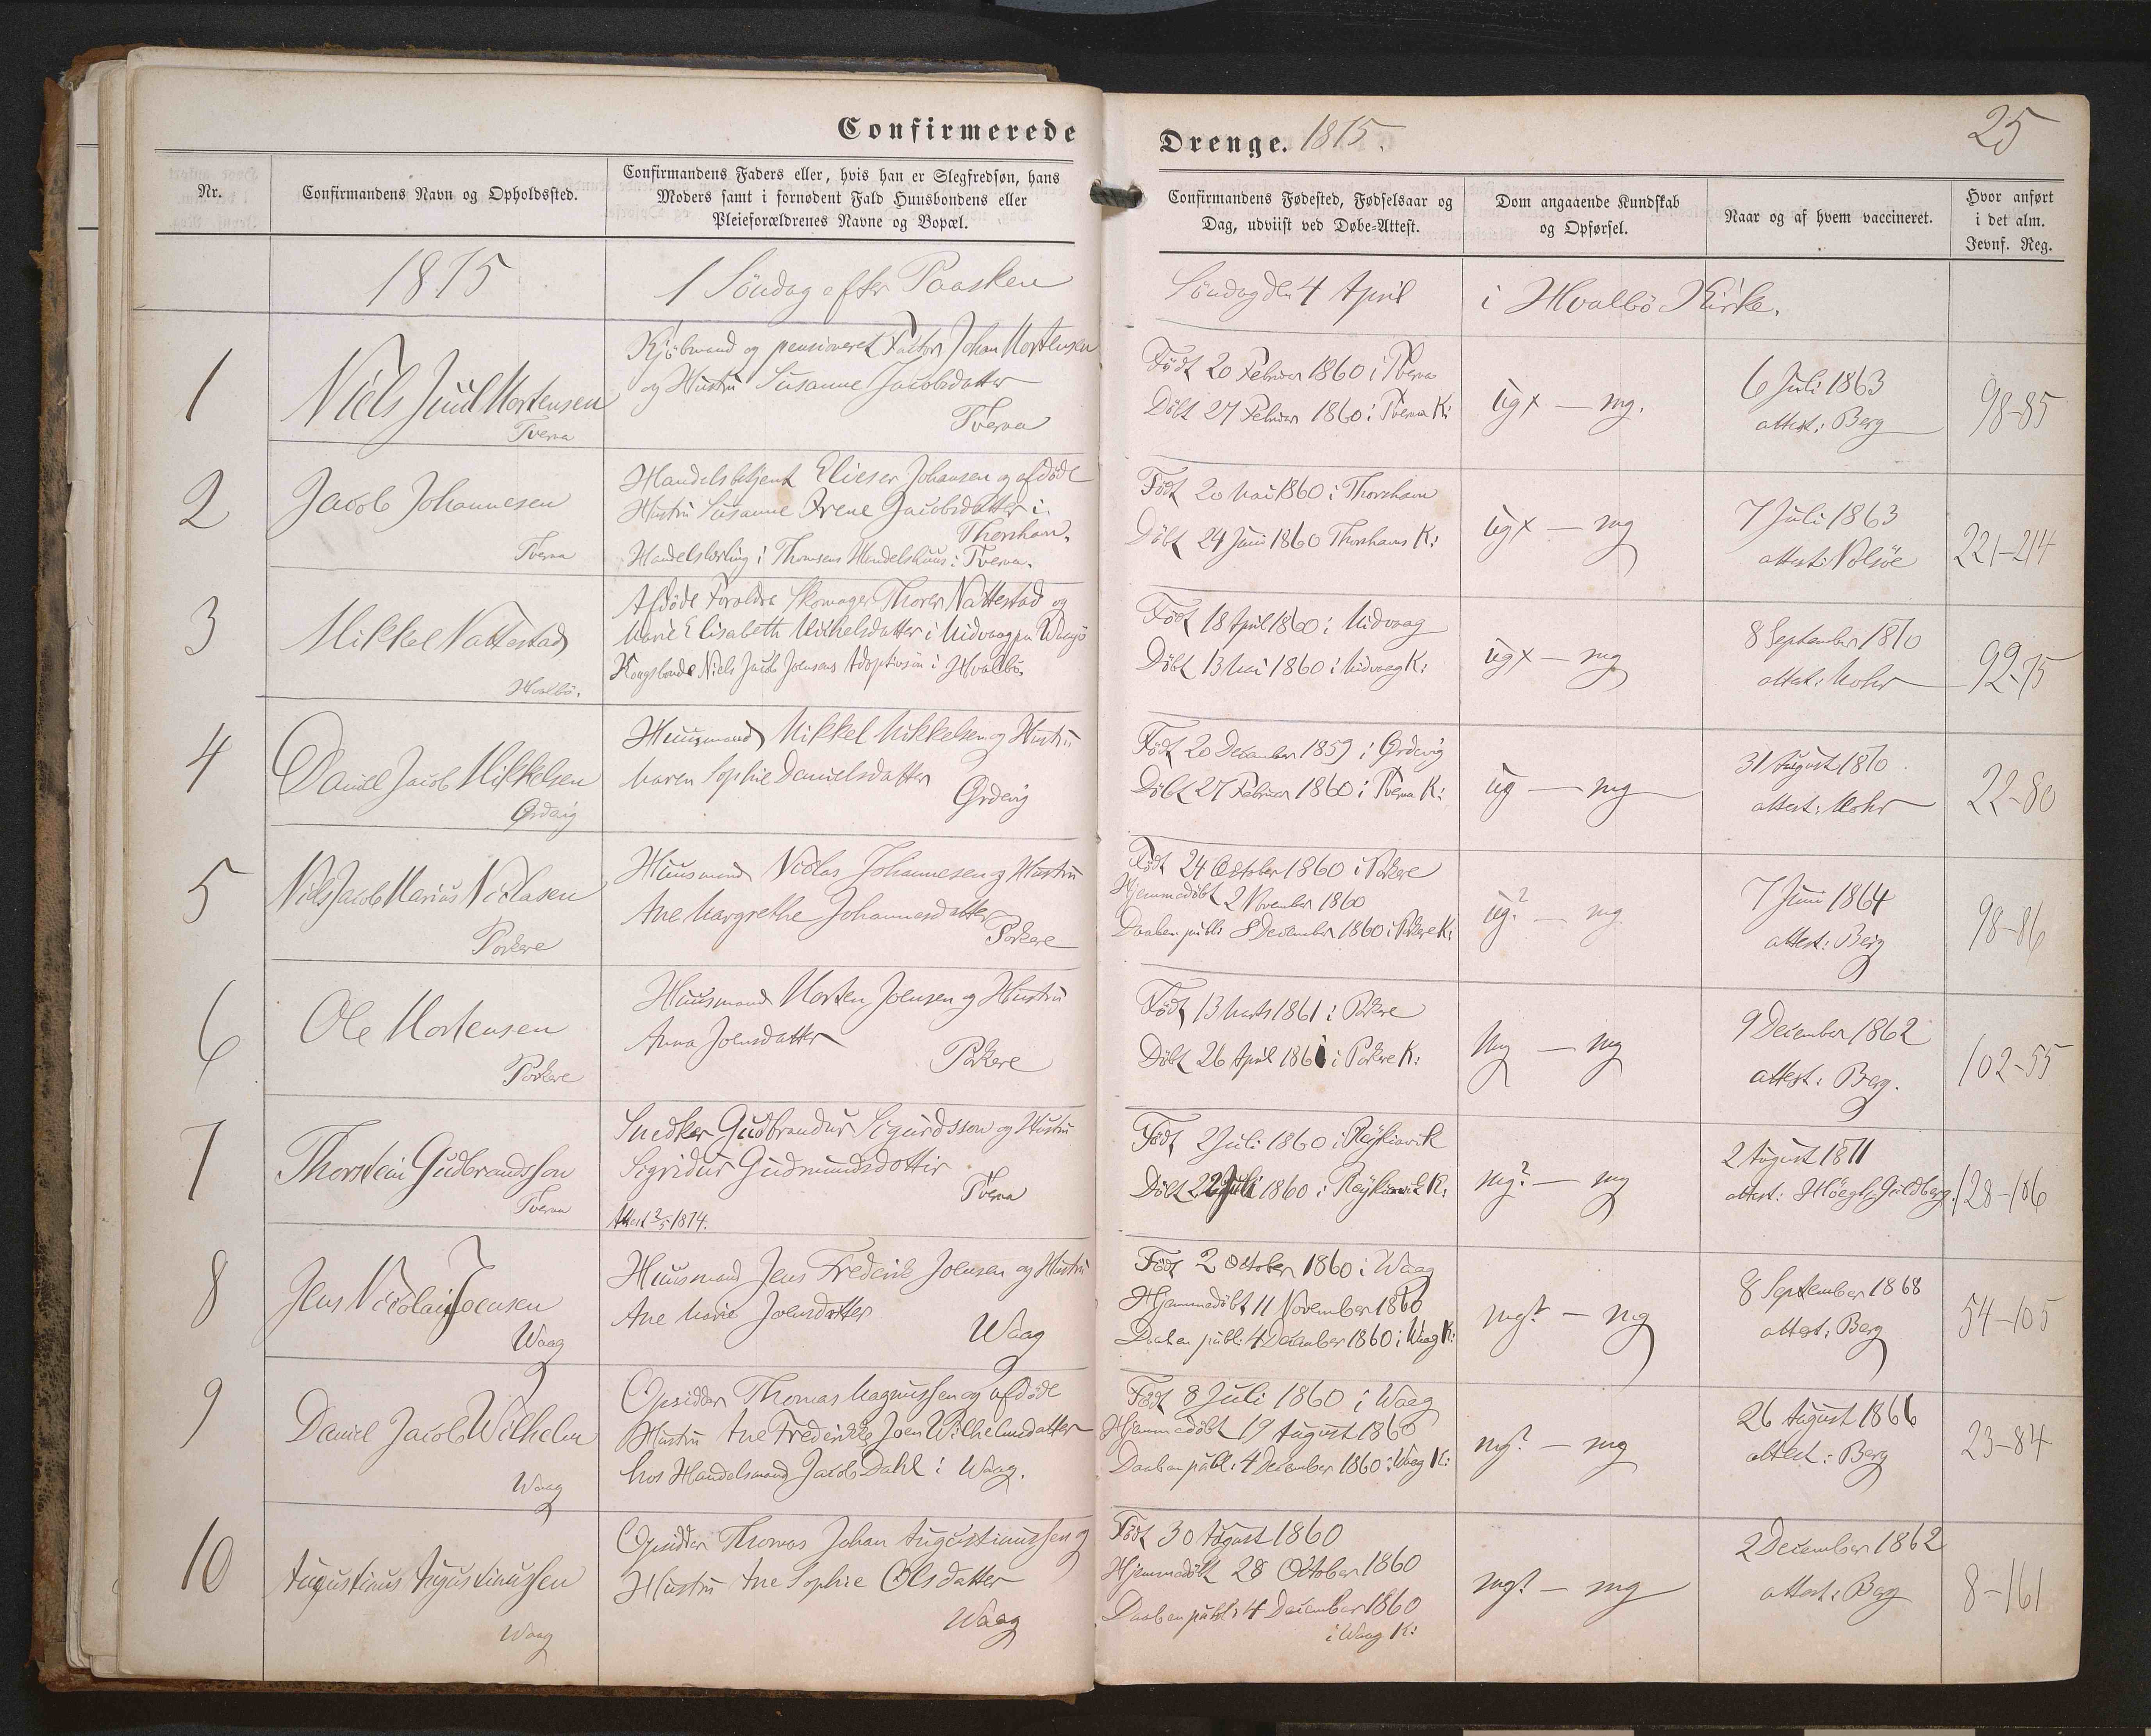 Confirmerede
Drenge. 1875.
25
Nr.
Confirmandens Navn og Opholdssted.
Confirmandens Faders eller, hvis han er Slegfredsøn, hans
Moders samt i fornødent Fald Huusbondens eller
Pleieforældrenes Navne og Bopæl.
Confirmandens Fødested, Fødselsaar og
Dag, udviist ved Døbe-Attest.
Dom angaaende Kundskab
og Opførsel.
Naar og af hvem vaccineret.
Hvor anført
i det alm.
Jevnf. Reg.
1875
1 Söndag efter Paasken
Söndag den 4 April
i Hvalbö Kirke.
1
Niels Juul Mortensen
Tveraa
Kjöbmand og pensioneret Factor Johan Mortensen
og Hustru Susanne Jacobsdatter
Tveraa
Födt 20 Februar 1860 i Tveraa
Döbt 27 Februar 1860 i Tveraa K:
ug+ — mg.
6 Juli 1863
attest: Berg
98-85
2
Jacob Johannesen
Tveraa
Handelsbetjent Elieser Johansen og afdöde
Hustru Susanne Irene Jacobsdatter i
Thorshavn.
Handelslærling i Thomsens Handelshuus i Tveraa.
Födt 20 Mai 1860 i Thorshavn
Döbt 24 Juni 1860 Thorshavns K:
ug+ — mg
7 Juli 1863
attest: Nolsöe
221-214
3
Mikkel Nattestad
Hvalbö.
Afdöde Forældre Skomager Thorer Nattestad og
Marie Elisabeth Michelsdatter i Midvaag paa Waagö
Kongsbonde Niels Jacob Joensens Adoptivsön i Hvalbö.
Födt 18 April 1860 i Midvaag
Döbt 13 Mai 1860 i Midvaag K:
ug+ — mg
8 September 1870
attest: Mohr
92-75
4
Daniel Jacob Mikkelsen
Ördevig
Huusmand Mikkel Mikkelsen og Hustru
Maren Sophie Danielsdatter
Ördevig
Födt 20 December 1859 i Ördevig
Döbt 27 Februar 1860 i Tveraa K:
ug — mg
31 August 1870
attest: Mohr
22-80
5
Niels Jacob Marius Niclasen
Porkere
Huusmand Niclas Johannesen og Hustru
Ane Margrethe Johannesdatter
Porkere
Födt 24 October 1860 i Porkere
Hjemmedöbt 2 November 1860
Daaben publi 8 December 1860 i Porkere K:
ug? — mg
7 Juni 1864
attest: Berg
98-86
6
Ole Mortensen
Porkere
Huusmand Morten Joensen og Hustru
Anna Joensdatter
Porkere
Födt 13 Marts 1861 i Porkere
Döbt 26 April 1861 i Porkere K:
Mg — mg
9 December 1862
attest: Berg.
102-55
7
Thorstein Gudbrandsson
Tveraa
Snedker Gudbrandur Sigurdsson og Hustru
Sigridur Gudmundsdottir
Tveraa
Attest 2/5 1874.
Födt 2 Juli 1860 i Reykiavik
Döbt 22 Juli 1860 i Reykiavik K:
mg? — mg
2 August 1871
attest: Höegh-Guldberg.
128-106
8
Jens Nicolai Joensen
Waag
Huusmand Jens Frederik Joensen og Hustru
Ane Marie Joensdatter
Waag
Födt 2 October 1860 i Waag
Hjemmedöbt 11 November 1860
Daaben publ: 4 December 1860 i Waag K:
mg? — mg
8 September 1868
attest: Berg
54-105
9
Daniel Jacob Wilhelm
Waag
Opsidder Thomas Magnussen og afdöde
Hustru Ane Frederikke Joen Wilhelmsdatter
hos Handelsmand Jacob Dahl i Waag.
Födt 8 Juli 1860 i Waag
Hjemmedöbt 19 August 1860
Daaben publ: 4 December 1860 i Waag K:
mg? — mg
26 August 1866
attest: Berg
23-84
10
Augustinus Augustinussen
Waag
Opsidder Thomas Johan Augustinussen og
Hustru Ane Sophie Olsdatter
Waag
Födt 30 August 1860
Hjemmedöbt 28 October 1860
Daaben publ: 4 December 1860
i Waag K:
mg? — mg
2 December 1862
attest: Berg
8-161